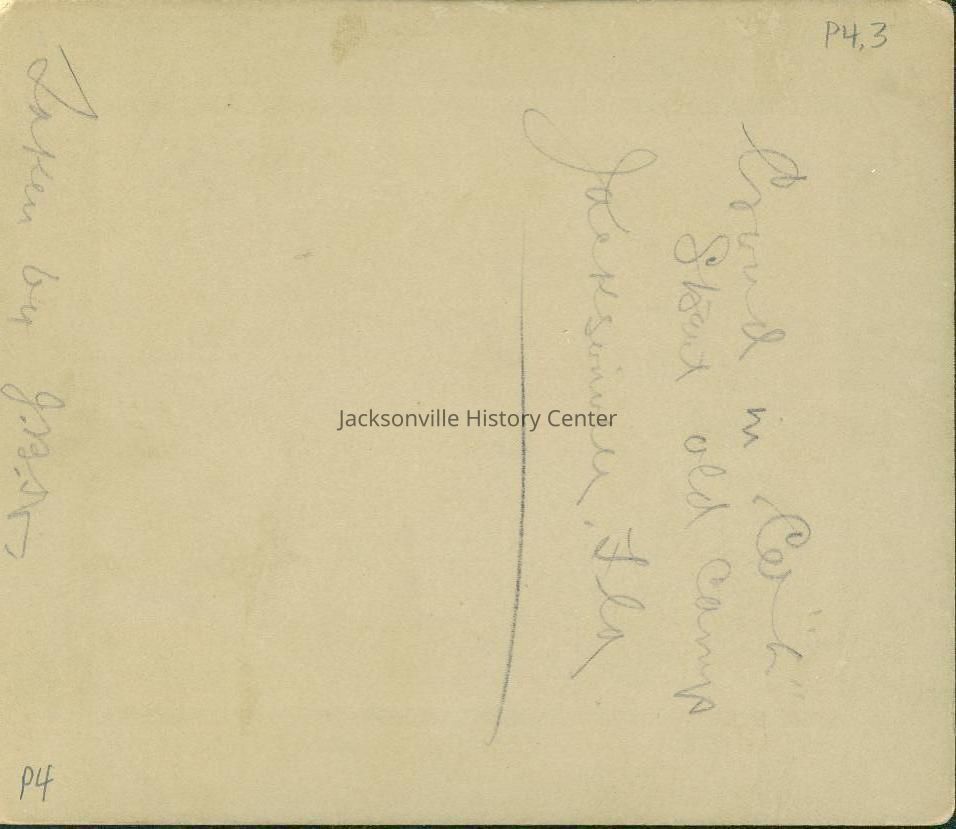 P4.3
Crowd in
old camp
Jacksonville, Fla
Taken by
Jacksonville History Center
P4